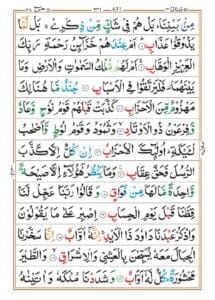 ٦٣١ 631
مِنْۢ بَیْنِنَا ؕ بَلْ هُمْ فِیْ شَكٍّ مِّنْ ذِكْرِیْ ۚ بَلْ لَّمَّا
یَذُوْقُوْا عَذَابِ ؕ اَمْ عِنْدَهُمْ خَزَآىِٕنُ رَحْمَةِ رَبِّكَ
الْعَزِیْزِ الْوَهَّابِ ۚ اَمْ لَهُمْ مُّلْكُ السَّمٰوٰتِ وَالْاَرْضِ وَمَا
بَیْنَهُمَا ۫ فَلْیَرْتَقُوْا فِی الْاَسْبَابِ جُنْدٌ مَّا هُنَالِكَ
مَهْزُوْمٌ مِّنَ الْاَحْزَابِ كَذَّبَتْ قَبْلَهُمْ قَوْمُ نُوْحٍ وَّعَادٌ
وَّفِرْعَوْنُ ذُو الْاَوْتَادِ وَثَمُوْدُ وَقَوْمُ لُوْطٍ وَّاَصْحٰبُ
لْـَٔیْكَةِ ؕ اُولٰٓىِٕكَ الْاَحْزَابُ اِنْ كُلٌّ اِلَّا كَذَّبَ
الرُّسُلَ فَحَقَّ عِقَابِ وَمَا یَنْظُرُ هٰۤؤُلَآءِ اِلَّا صَیْحَةً
وَّاحِدَةً مَّا لَهَا مِنْ فَوَاقٍ وَقَالُوْا رَبَّنَا عَجِّلْ لَّنَا
قِطَّنَا قَبْلَ یَوْمِ الْحِسَابِ اِصْبِرْ عَلٰی مَا یَقُوْلُوْنَ
وَاذْكُرْ عَبْدَنَا دَاوٗدَ ذَا الْاَیْدِ ۚ اِنَّهٗۤ اَوَّابٌ اِنَّا سَخَّرْنَا
الْجِبَالَ مَعَهٗ یُسَبِّحْنَ بِالْعَشِیِّ وَالْاِشْرَاقِ وَالطَّیْرَ
مَحْشُوْرَةً ؕ كُلٌّ لَّهٗۤ اَوَّابٌ وَشَدَدْنَا مُلْكَهٗ وَاٰتَیْنٰهُ